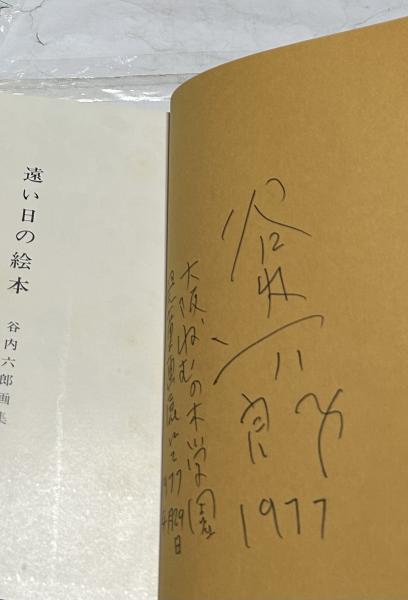 谷内六郎
1977
大阪ねむの木学園
1977
4月29日
遠い日の絵本
谷内六郎画集